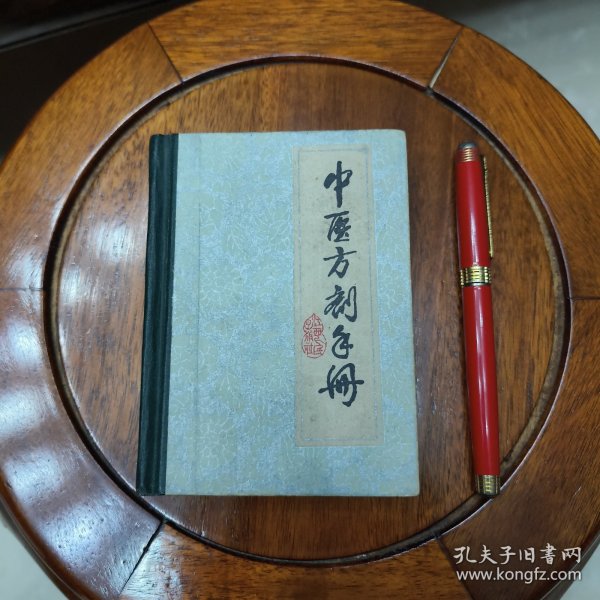 中医方剂手册
孔夫子旧书网
www.kongfz.com